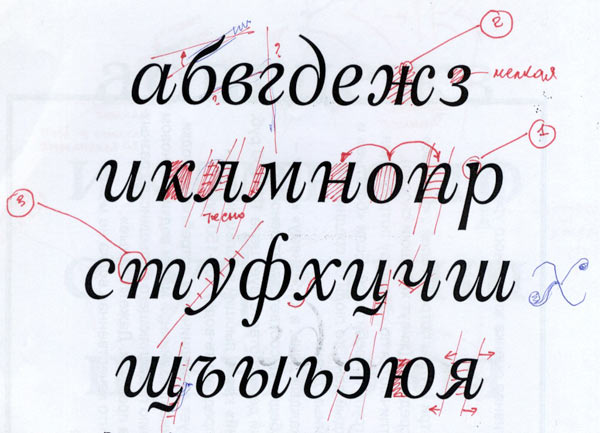 2
абвгдежз
1
иклмнопр
3
тесно
стуфхцчш
щъыьэюя